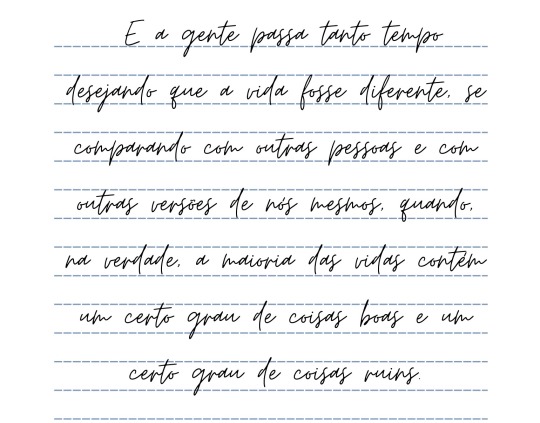 E a gente passa tanto tempo
desejando que a vida fosse diferente, se
comparando com outras pessoas e com
outras versões de nós mesmos, quando,
na verdade, a maioria das vidas contém
um certo grau de coisas boas e um
certo grau de coisas ruins.